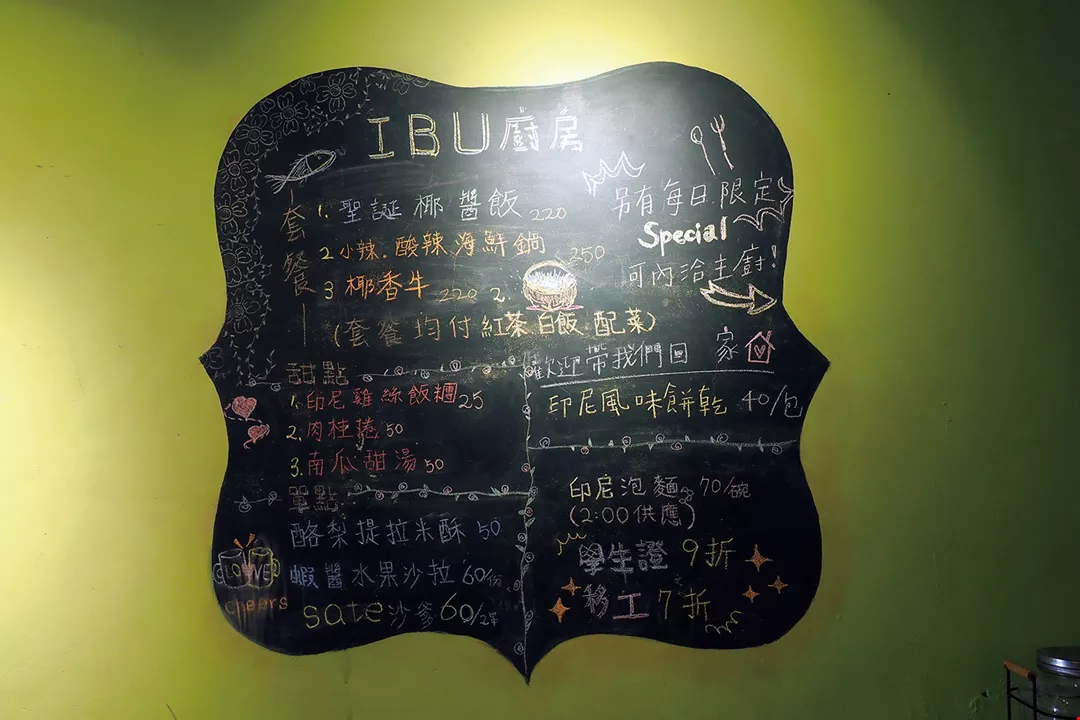 IBU廚房
套餐
1. 聖誕椰醬飯 220
2 小辣.酸辣海鮮鍋 250
3 椰香牛 220 2.
(套餐均付紅茶.白飯.配菜)
另有每日限定
Special
可內洽主廚!
甜點
1. 印尼雞絲飯糰 25
2. 肉桂捲 50
3. 南瓜甜湯 50
單點
酪梨提拉米酥 50
蝦醬水果沙拉 60/份
sate沙爹 60/2串
LOVE
cheers
歡迎帶我們回家
印尼風味餅乾 40/包
印尼泡麵 70/碗
(2:00供應)
學生證 9折
移工 7折